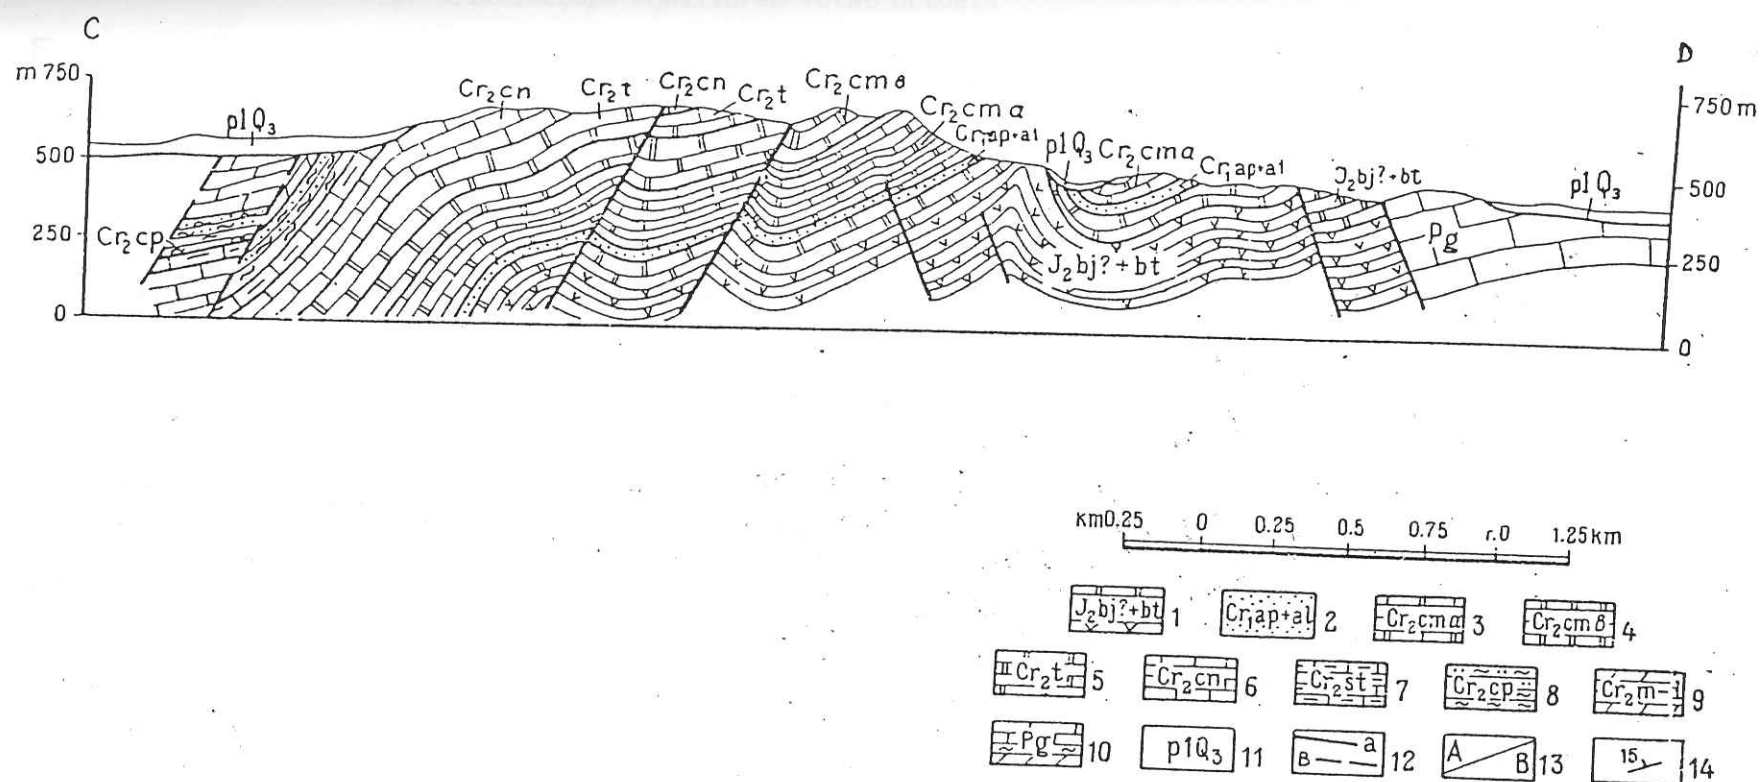 C
D
m 750
500
250
0
750 m
500
250
0
p1Q₃
Cr₂cn
Cr₂t
Cr₂cn
Cr₂t
Cr₂cm в
Cr₂cm a
Cr₁ap+al
p1Q₃
Cr₂cm a
Cr₁ap+al
J₂bj?+bt
p1Q₃
Cr₂cp
J₂bj?+bt
Pg
км0.25 0 0.25 0.5 0.75 1.0 1.25км
J₂bj?+bt 1 Cr₁ap+al 2 Cr₂cm a 3 Cr₂cm в 4
Cr₂t 5 Cr₂cn 6 Cr₂st 7 Cr₂cp 8 Cr₂m 9
Pg 10 p1Q₃ 11 a в 12 A B 13 15 14